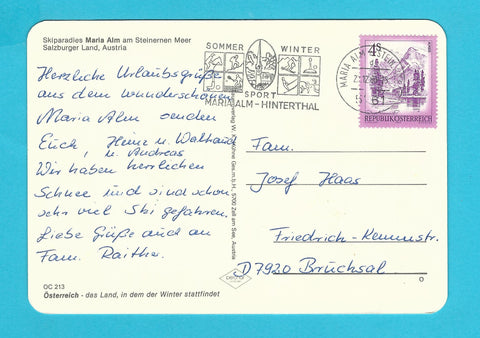 Skiparadies Maria Alm am Steinernen Meer
Salzburger Land, Austria
Herzliche Urlaubsgrüße
aus dem wunderschönen
Maria Alm senden
Euch, Heinz u. Waltraud
u. Andreas
Wir haben herrlichen
Schnee und sind schon
sehr viel Ski gefahren.
Liebe Grüße auch an
Fam.
OC 213
Österreich - das Land, in dem der Winter stattfindet
SOMMER WINTER
SPORT
MARIA ALM - HINTERTHAL
MARIA ALM
4S
REPUBLIK ÖSTERREICH
Fam.
Josef Haas
Friedrich-
D 7920 Bruchsal
5700 Zell am See, Austria